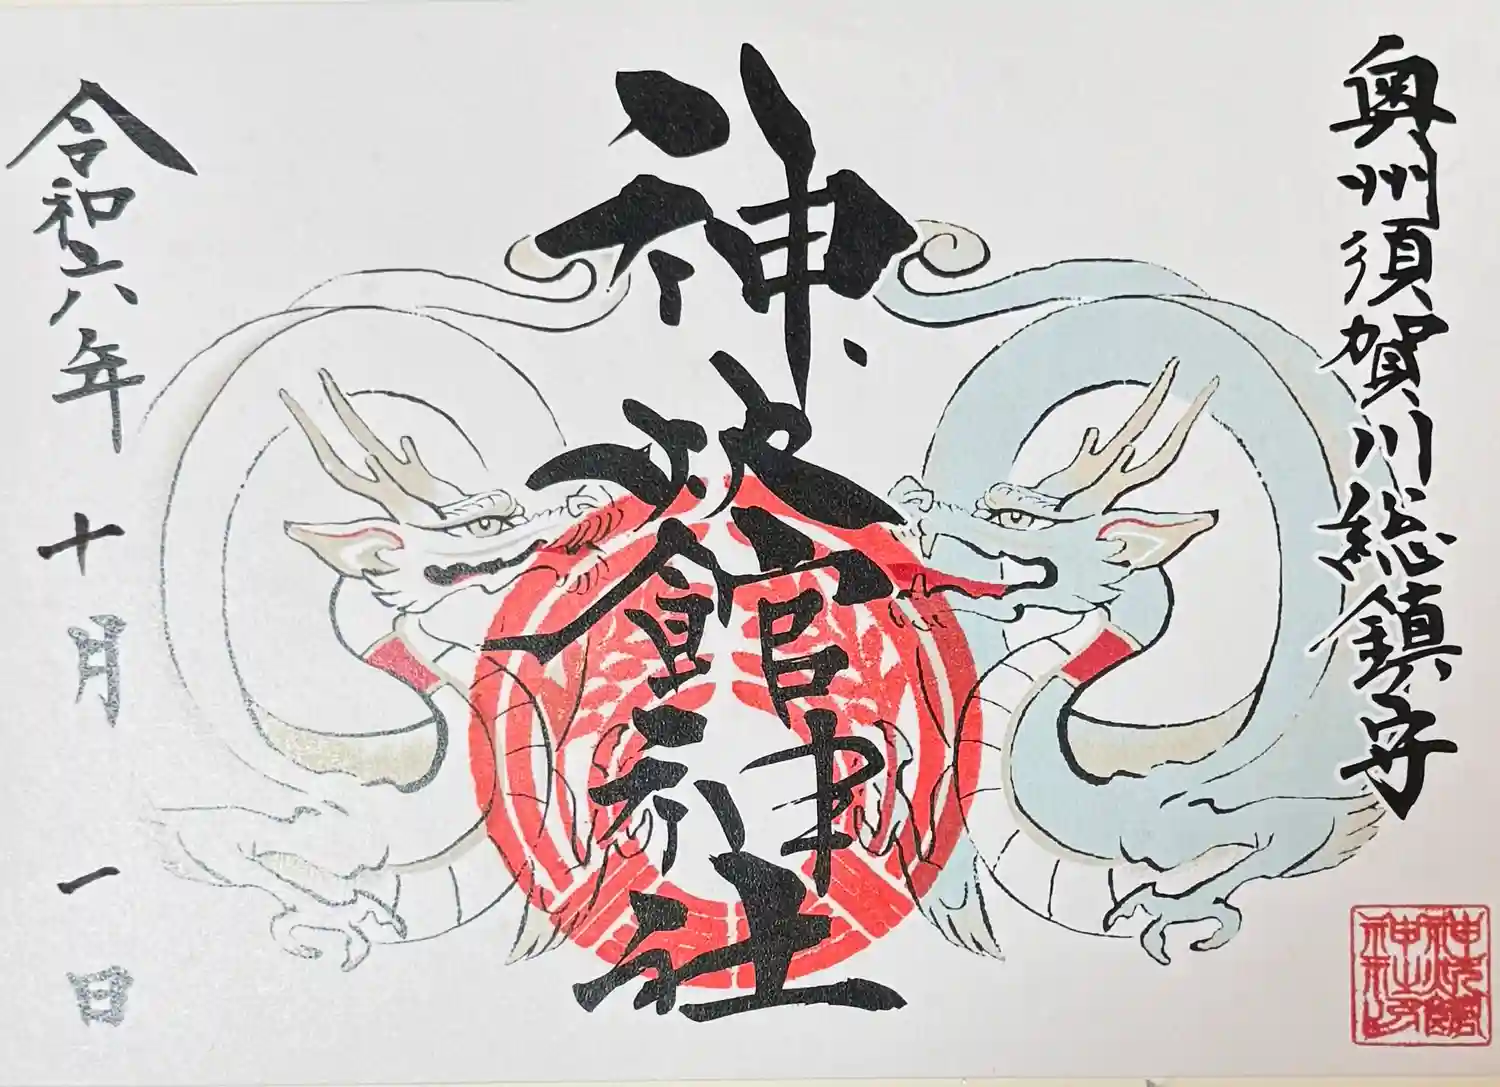 奥州須賀川総鎮守
神炊館神社
令和六年十月一日
神炊館
神社印